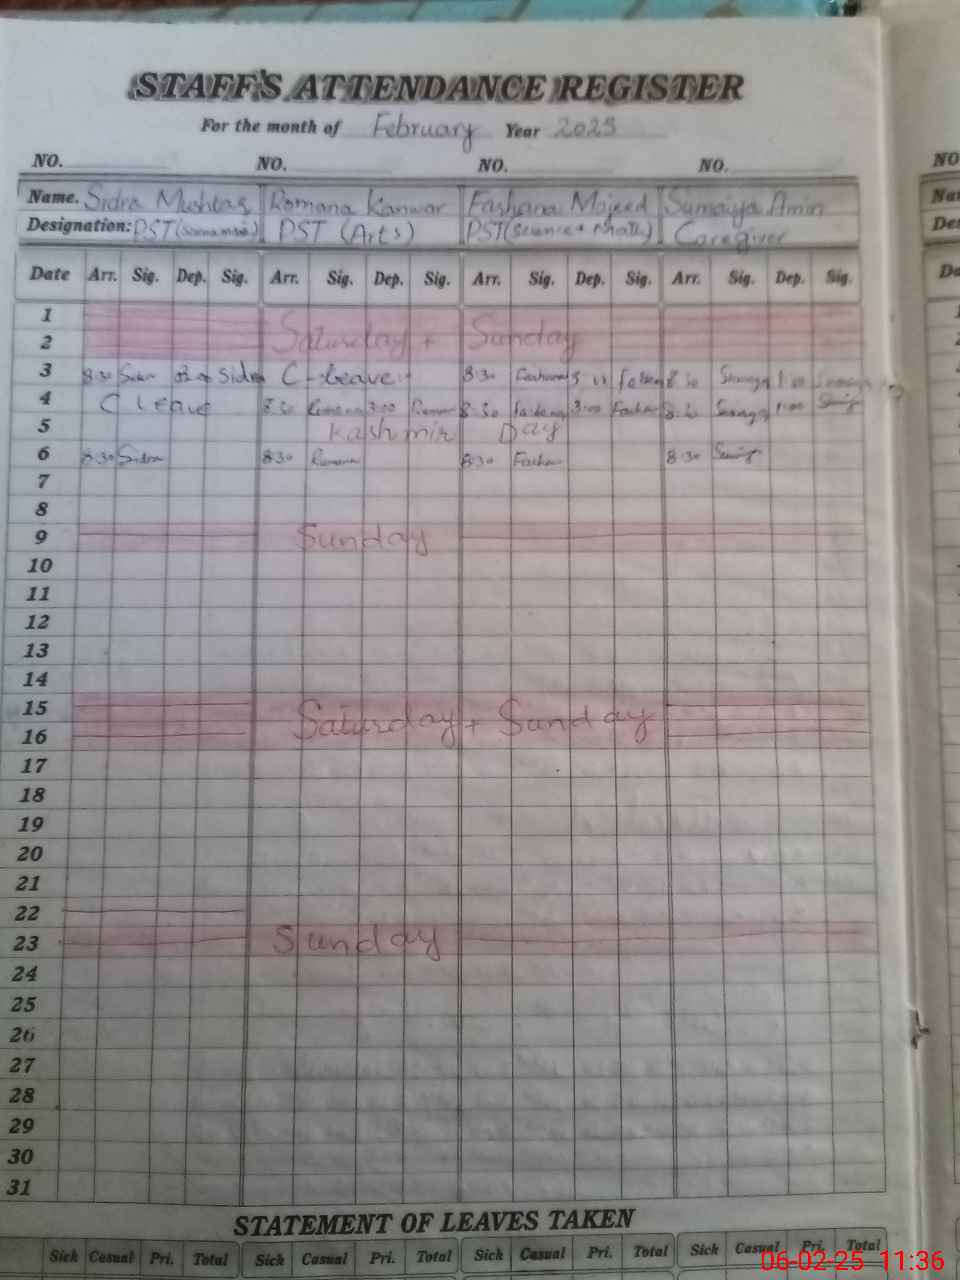 STAFF'S ATTENDANCE REGISTER
For the month of February Year 2025
NO. NO. NO. NO. NO
Name. Sidra Mushtaq Romana Kanwar Fashana Majeed Sumaiya Amin
Designation: PST PST (Arts) PST (Science + Math) Caregiver
Date Arr. Sig. Dep. Sig. Arr. Sig. Dep. Sig. Arr. Sig. Dep. Sig. Arr. Sig. Dep. Sig.
1
Saturday + Sunday
2
3 8:30 Sidra C-Leave 8:30 8:30 1:00
4 C Leave 8:30 Romana 3:00 8:30 3:00 8:30 1:00
5 Kashmir Day
6 8:30 Sidra 8:30 Romana 8:30 8:30
7
8
9 Sunday
10
11
12
13
14
15
Saturday + Sunday
16
17
18
19
20
21
22
23 Sunday
24
25
26
27
28
29
30
31
STATEMENT OF LEAVES TAKEN
Sick Casual Pri. Total Sick Casual Pri. Total Sick Casual Pri. Total Sick Casual Pri. Total
06-02-25 11:36